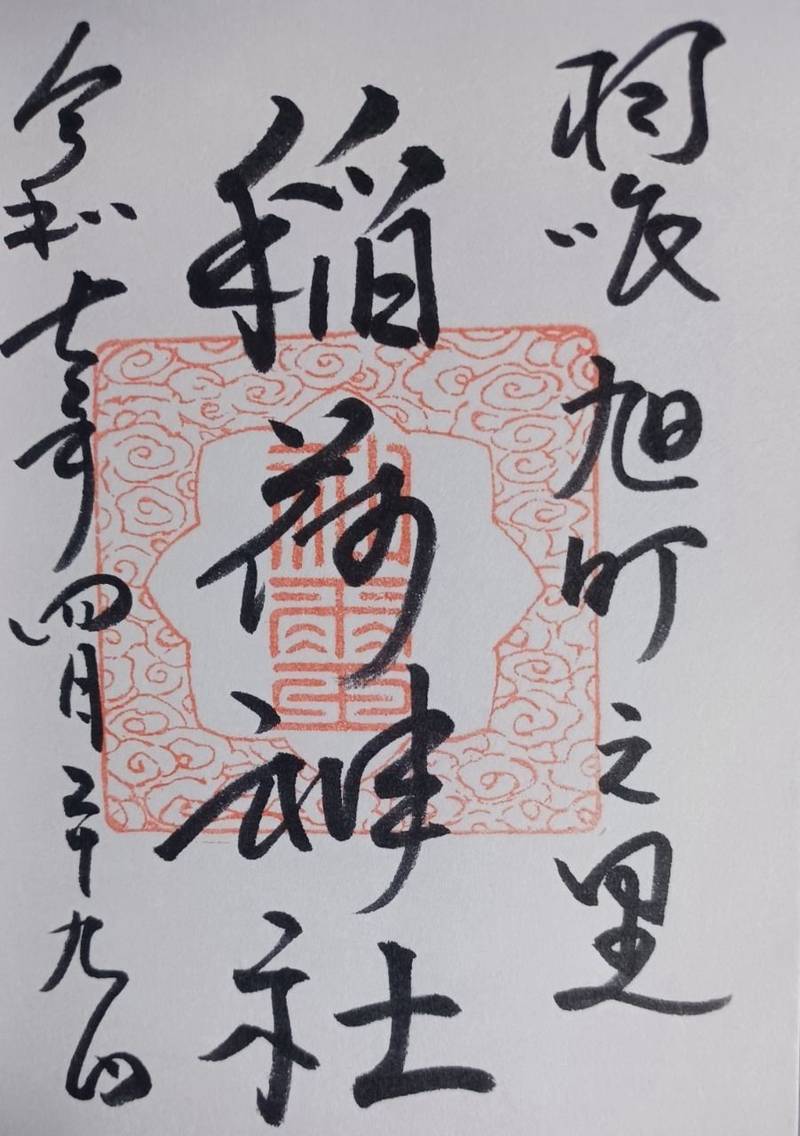 羽咋 旭町之里
稲荷神社
令和七年四月二十九日